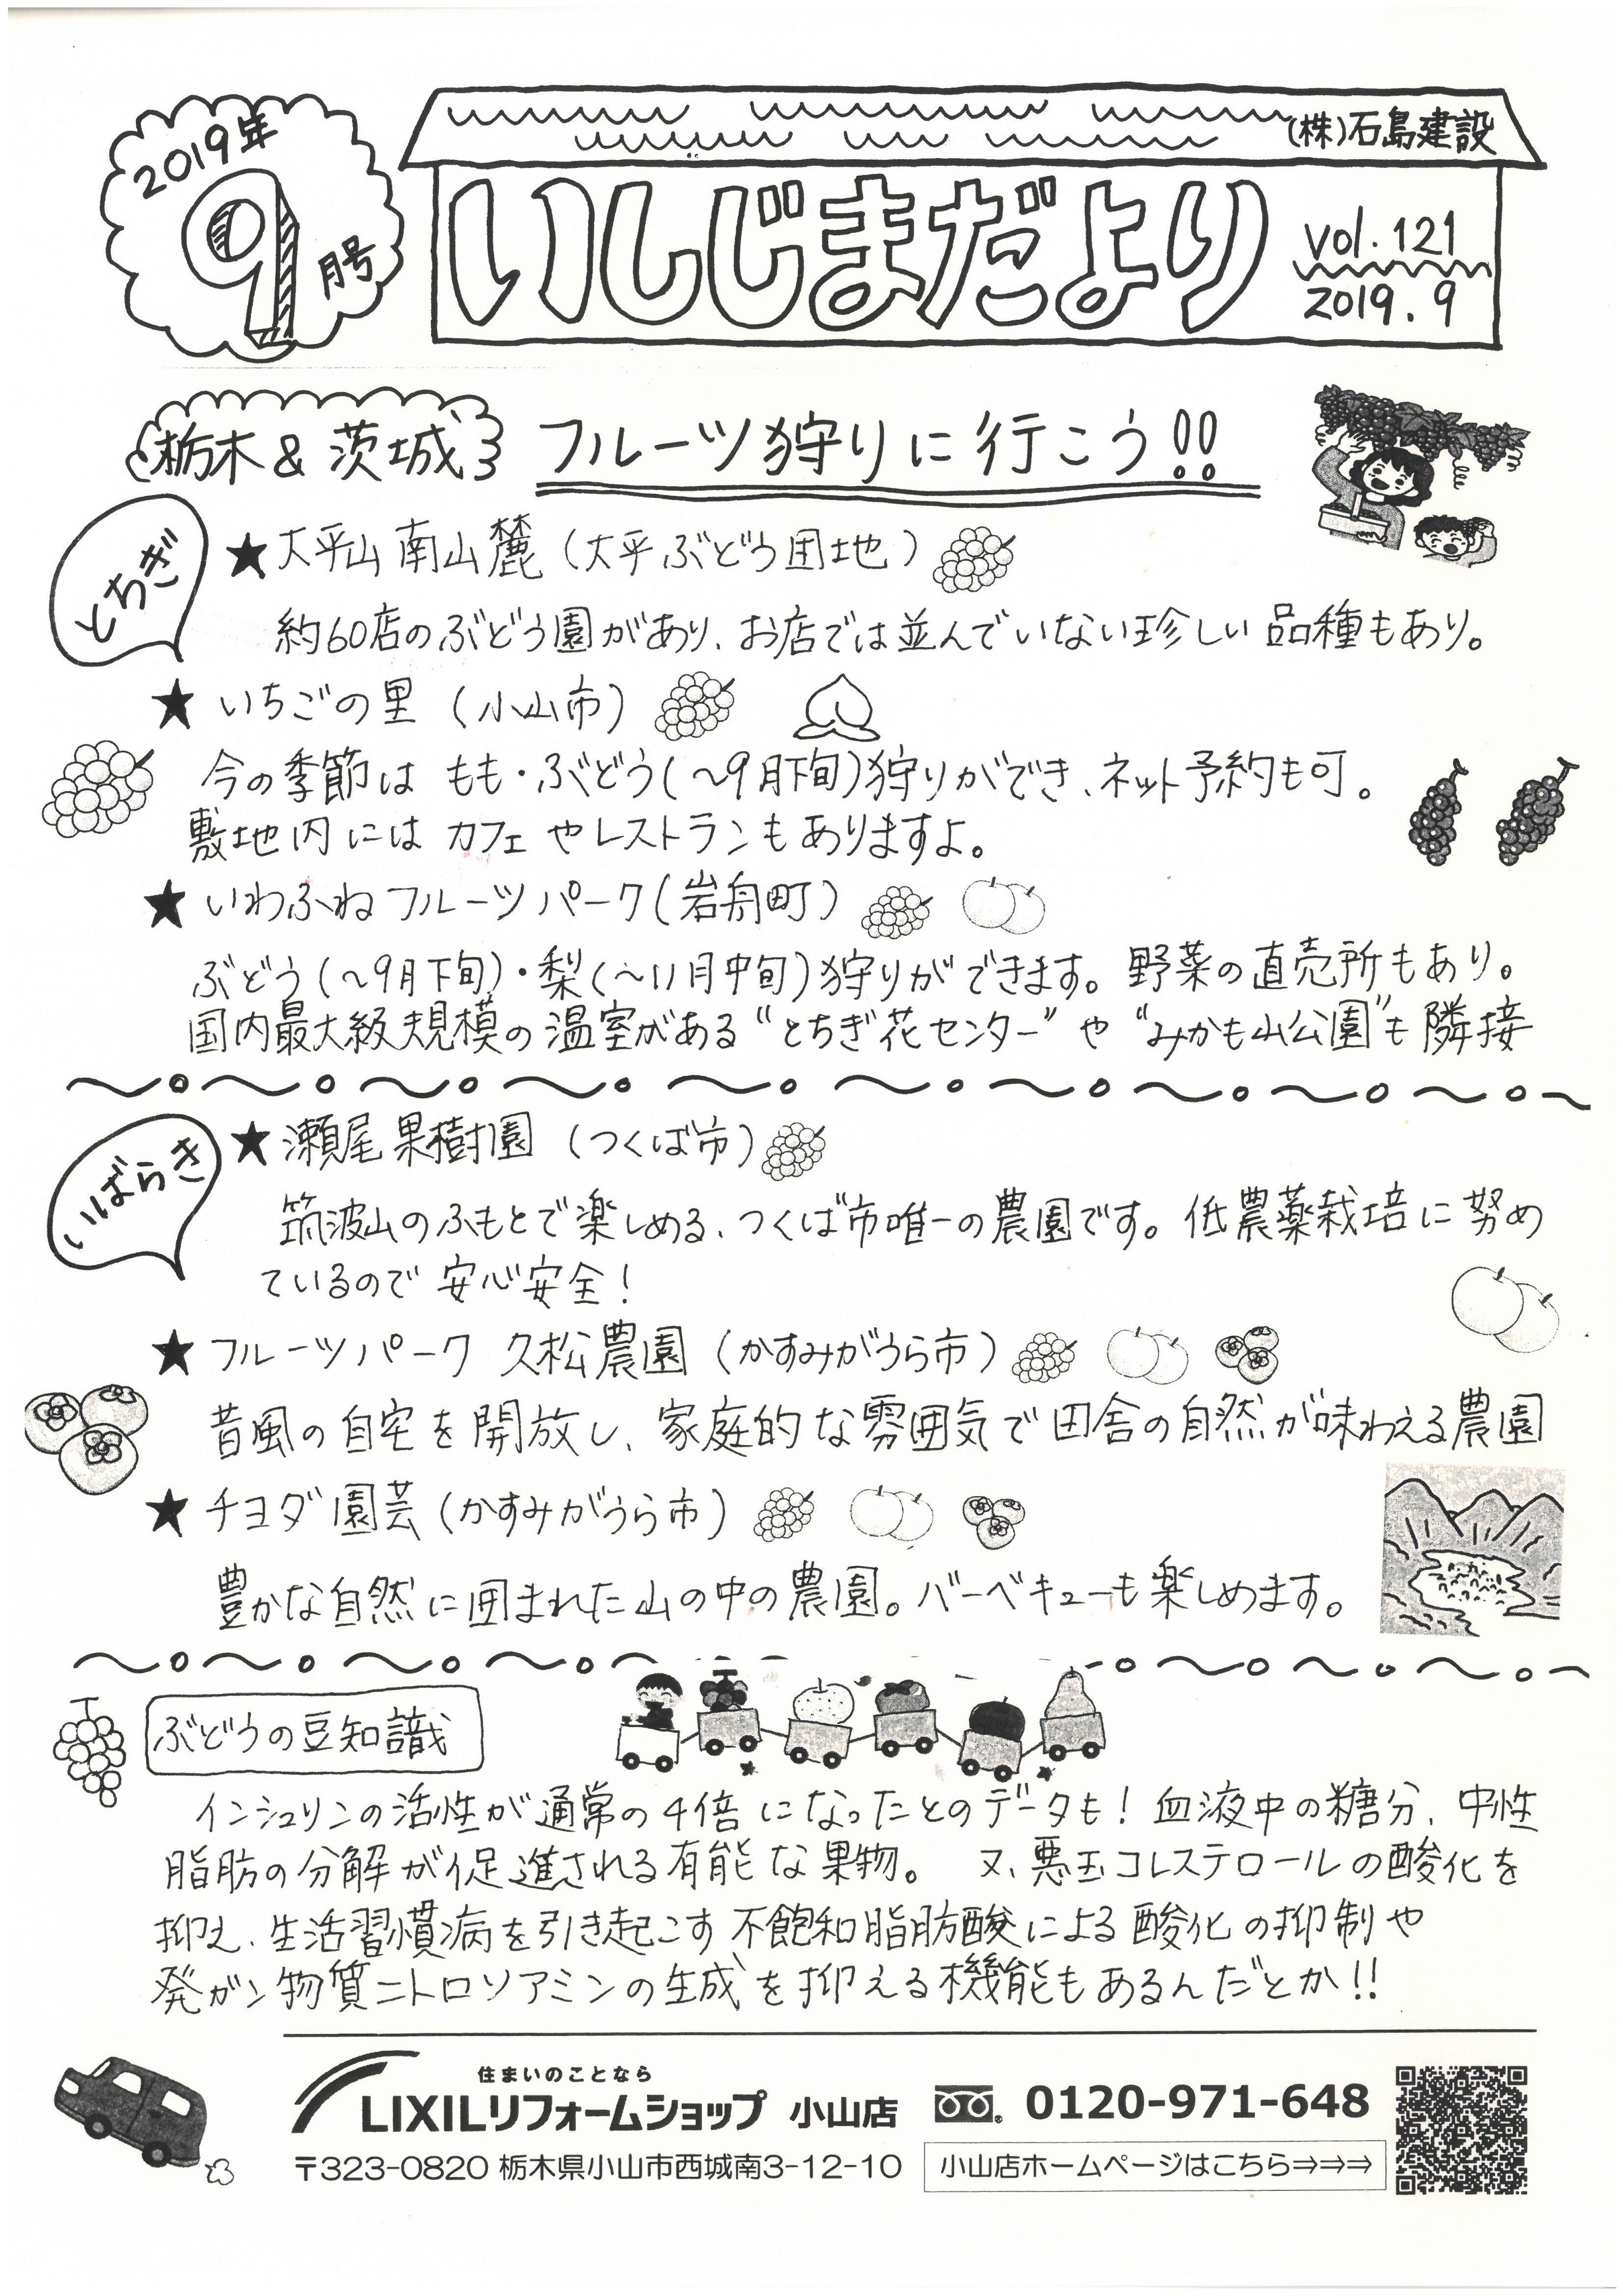 2019年
9月号
(株)石島建設
いしじまだより
Vol.121
2019.9
栃木&茨城 フルーツ狩りに行こう!!
とちぎ
★大平山南山麓(大平ぶどう団地)
約60店のぶどう園があり、お店では並んでいない珍しい品種もあり。
★いちごの里(小山市)
今の季節はもも・ぶどう(~9月下旬)狩りができ、ネット予約も可。
敷地内にはカフェやレストランもありますよ。
★いわふねフルーツパーク(岩舟町)
ぶどう(~9月下旬)・梨(~11月中旬)狩りができます。野菜の直売所もあり。
国内最大級規模の温室がある“とちぎ花センター”や“みかも山公園”も隣接
いばらき
★瀬尾果樹園(つくば市)
筑波山のふもとで楽しめる、つくば市唯一の農園です。低農薬栽培に努め
ているので安心安全!
★フルーツパーク 久松農園(かすみがうら市)
昔風の自宅を開放し、家庭的な雰囲気で田舎の自然が味わえる農園
★チヨダ園芸(かすみがうら市)
豊かな自然に囲まれた山の中の農園。バーベキューも楽しめます。
ぶどうの豆知識
インシュリンの活性が通常の4倍になったとのデータも!血液中の糖分、中性
脂肪の分解が促進される有能な果物。 又、悪玉コレステロールの酸化を
抑え、生活習慣病を引き起こす不飽和脂肪酸による酸化の抑制や
発ガン物質ニトロソアミンの生成を抑える機能もあるんだとか!!
住まいのことなら
LIXILリフォームショップ 小山店 0120-971-648
〒323-0820 栃木県小山市西城南3-12-10 小山店ホームページはこちら⇒⇒⇒